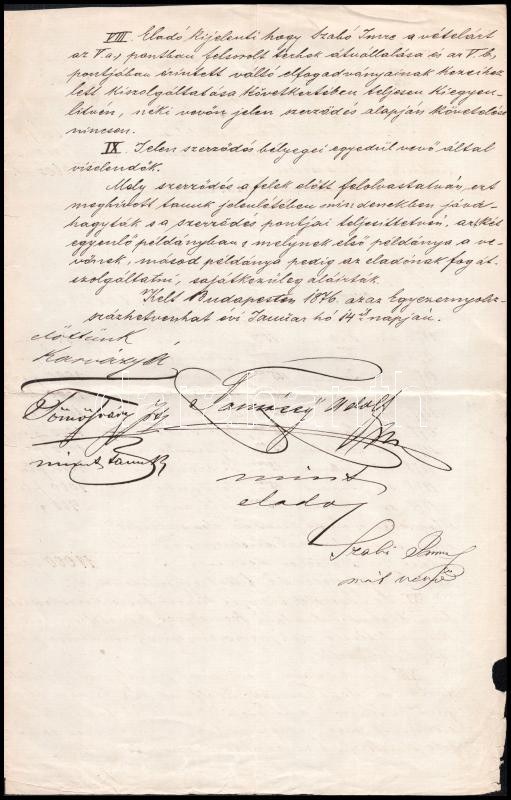 VIII. Eladó kijelenti hogy Szabó Imre a vételárt
az V.a, pontban felsorolt terhek átvállalása és az V. b,
pontjában érintett váltó elfogadványainak kezeihez
lett kiszolgáltatása következtében teljesen kiegyen-
litvén, néki vevőn jelen szerződés alapján követelése
nincsen.
IX. Jelen szerződés bélyegei egyedül vevő által
viselendők.
Mely szerződés a felek előtt felolvastatván, ezt
meghivott tanuk jelenlétében mindenekben jóvá-
hagyták s a szerződés pontjai teljesittetvén, az két
egyenlő példányban s melynek első példánya a ve-
vőnek, másod példánya pedig az eladónak fog át-
szolgáltatni, sajátkezüleg aláirták.
Kelt Budapesten 1876. azaz Egyezernyolcz-
százhetvenhat évi Januar hó 14ik napján.
előttünk
Tömösváry
Adolf
mint tanuk
mint
elado
Szabó Imre
mint vevő